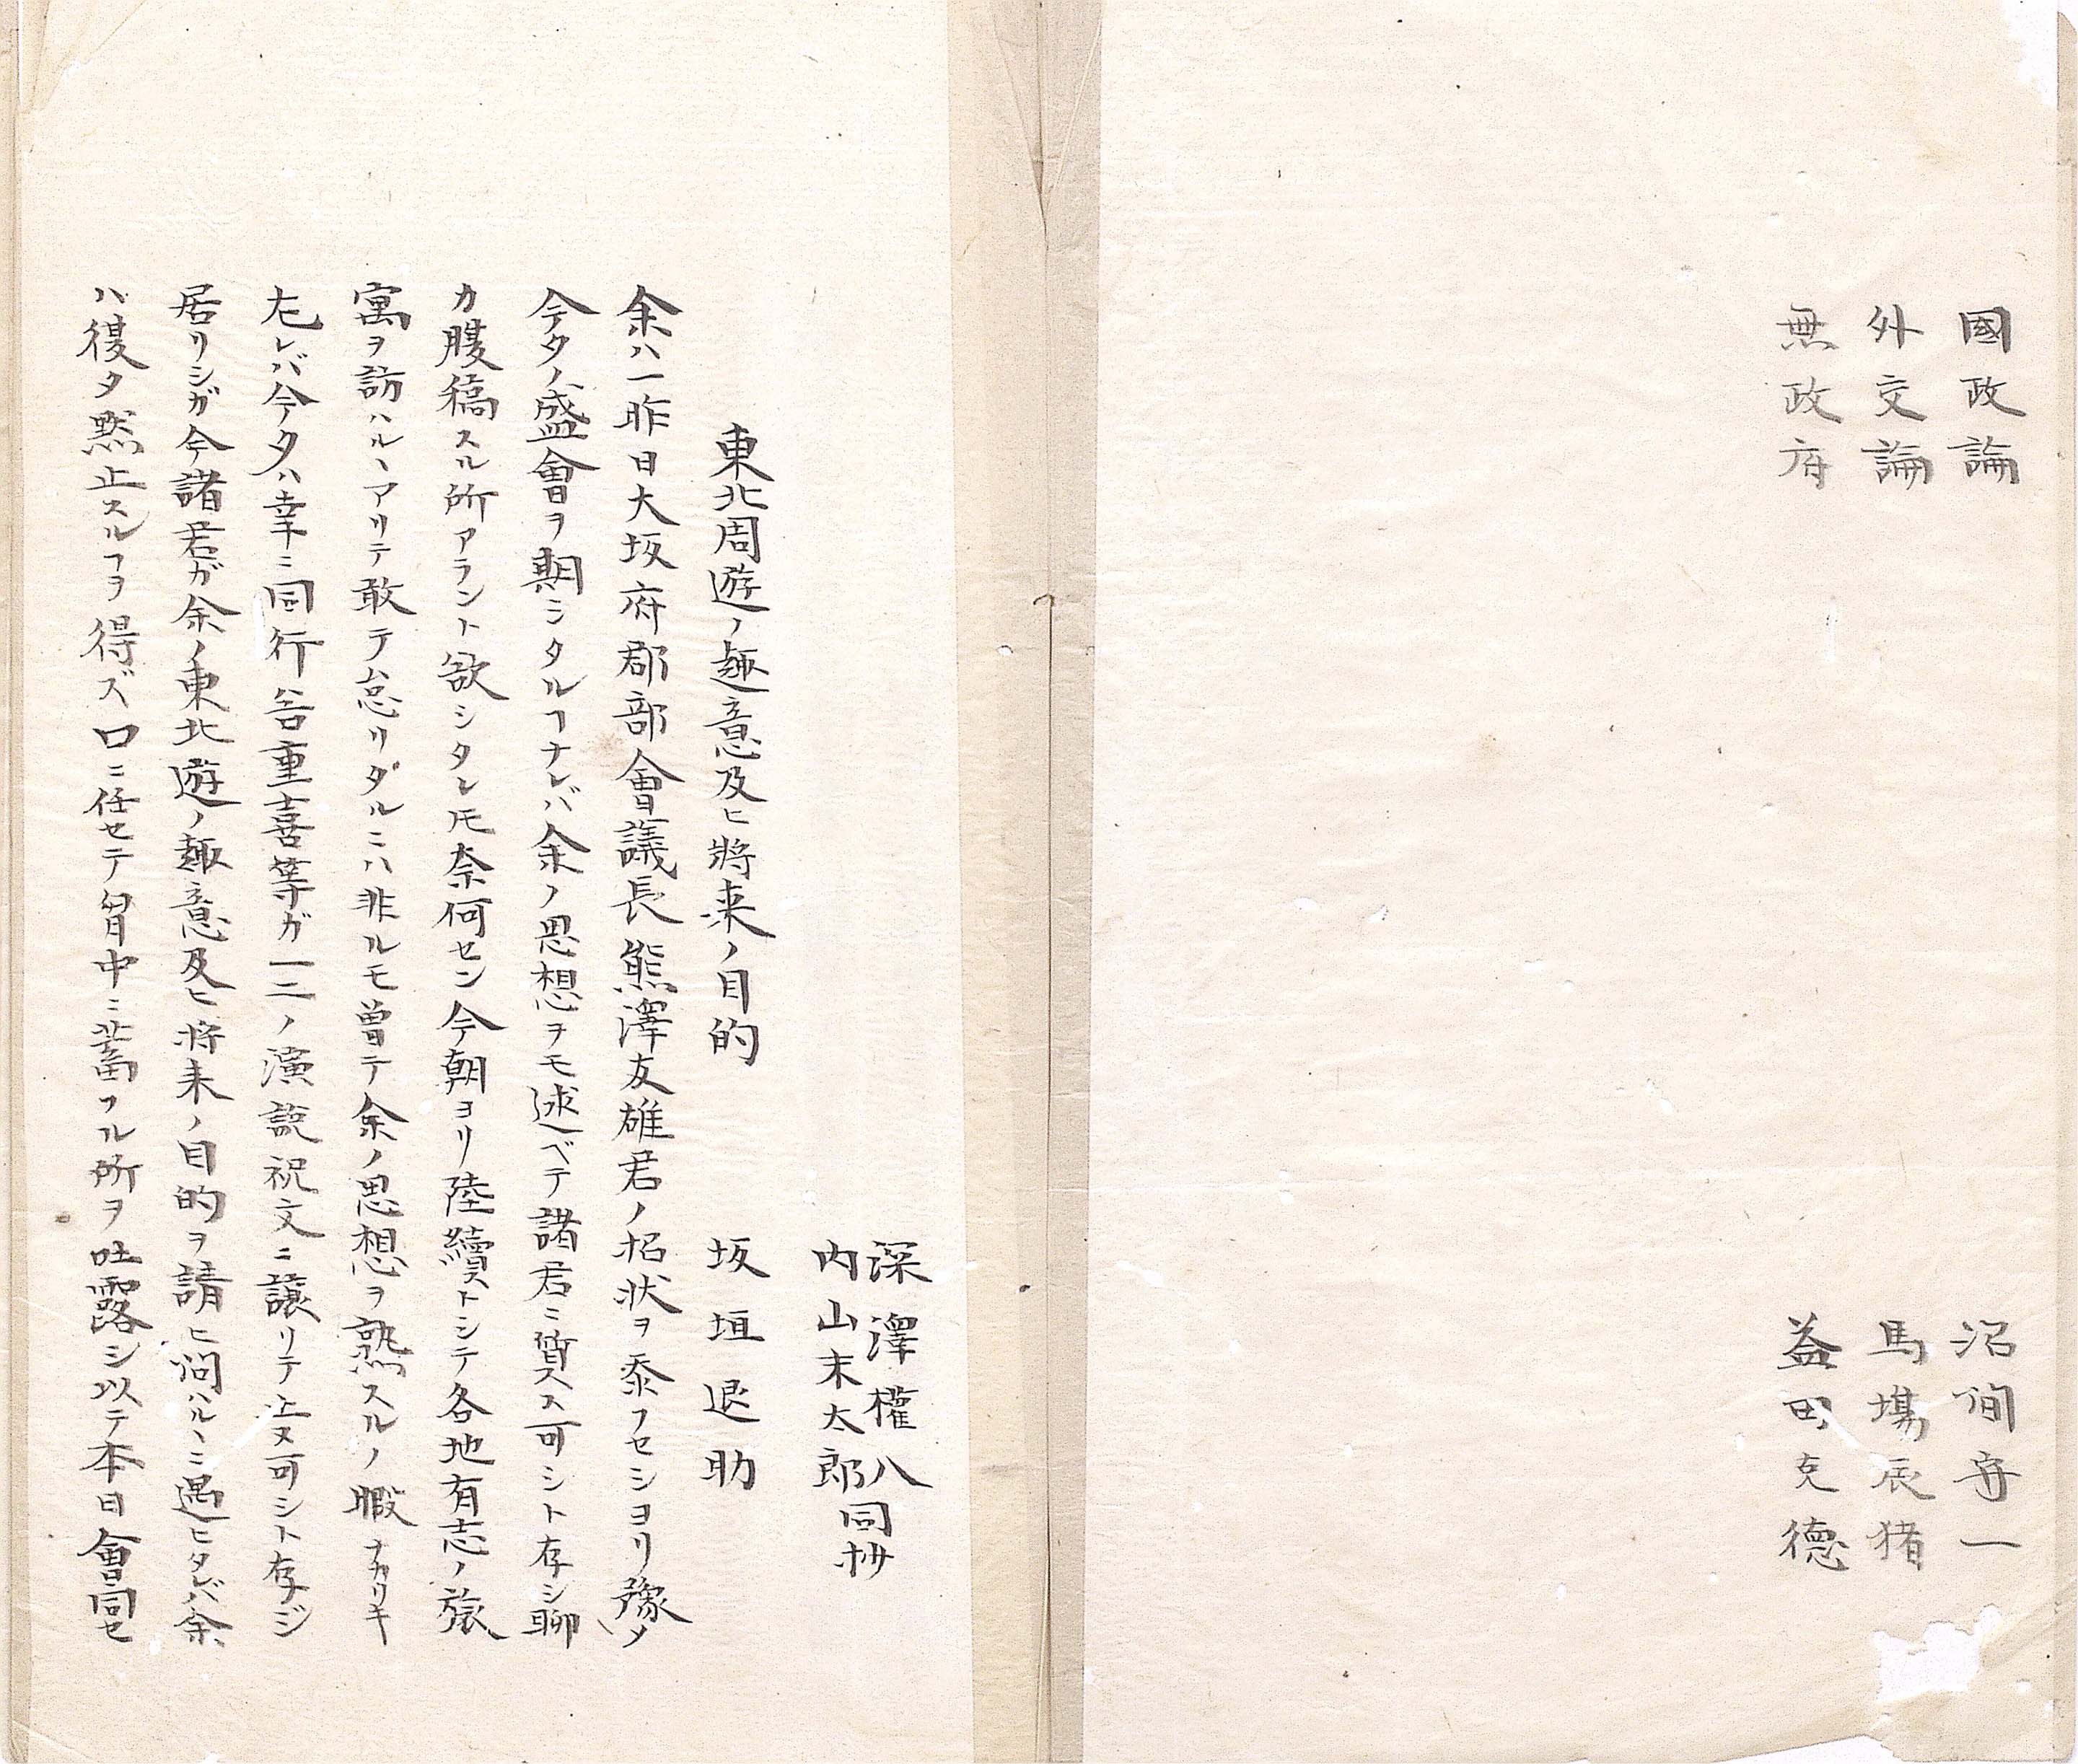 國政論　沼間守一
外交論　馬場辰猪
無政府　益田克徳
深澤權八
内山末太郎同抄
東北周遊ノ趣意及ヒ將来ノ目的
坂垣退助
余ハ一昨日大坂府郡部會議長熊澤友雄君ノ招状ヲ忝フセシヨリ豫メ
今夕ノ盛會ヲ期シタルヿナレバ余ノ思想ヲモ述ベテ諸君ニ質ス可シト存シ聊
カ腹稿スル所アラント欲シタレ𪜈奈何セン今朝ヨリ陸續トシテ各地有志ノ旅
寓ヲ訪ハルヽアリテ敢テ怠リタルニハ非ルモ曽テ余ノ思想ヲ熟スルノ暇ナカリキ
左レバ今夕ハ幸ニ同行谷重喜等ガ一二ノ演説祝文ニ譲リテ止ヌ可シト存ジ
居リシガ今諸君ガ余ノ東北遊ノ趣意及ヒ将来ノ目的ヲ請ヒ問ハルヽニ遇ヒタレバ余
ハ復タ黙止スルヿヲ得ズ口ニ任セテ胷中ニ蓄フル所ヲ吐露シ以テ本日會同セ